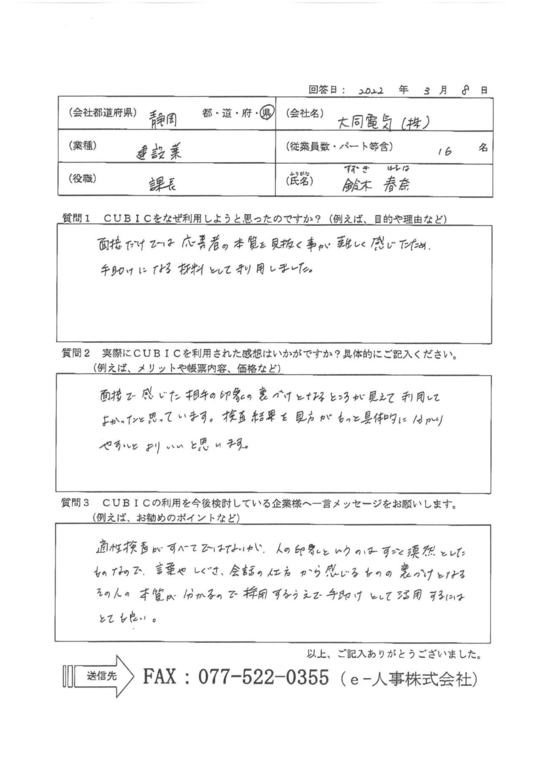 回答日： 2022 年 3 月 8 日
（会社都道府県） 静岡 都・道・府・県
（会社名） 大同電気（株）
（業種） 建設業
（従業員数・パート等含） 16 名
（役職） 課長
ふりがな すずき はるな
（氏名） 鈴木 春奈
質問１ ＣＵＢＩＣをなぜ利用しようと思ったのですか？（例えば、目的や理由など）
面接だけでは応募者の本質を見抜く事が難しく感じたため、
手助けになる材料として利用しました。
質問２ 実際にＣＵＢＩＣを利用された感想はいかがですか？具体的にご記入ください。
（例えば、メリットや帳票内容、価格など）
面接で感じた相手の印象の裏づけとなるところが見えて利用して
よかったと思っています。検査結果を見方がもっと具体的に分かり
やすいとよりいいと思います。
質問３ ＣＵＢＩＣの利用を今後検討している企業様へ一言メッセージをお願いします。
（例えば、お勧めのポイントなど）
適性検査がすべてではないが、人の印象というのはすごく漠然とした
ものなので、言葉やしぐさ、会話の仕方から感じるものの裏づけとなる
その人の本質が分かるので採用するうえで手助けとして活用するには
とても良い。
以上、ご記入ありがとうございました。
送信先 FAX：077-522-0355（ｅ−人事株式会社）